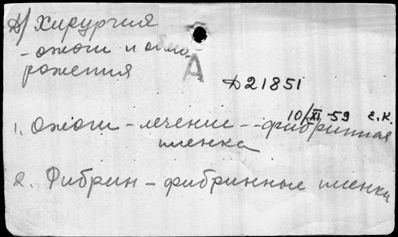 Д/ Хирургия
- ожоги и обмо-
рожения
А
Д21851
10/XI-59 г. К.
1. Ожоги - лечение - фибринная
пленка
2. Фибрин - фибринные пленки